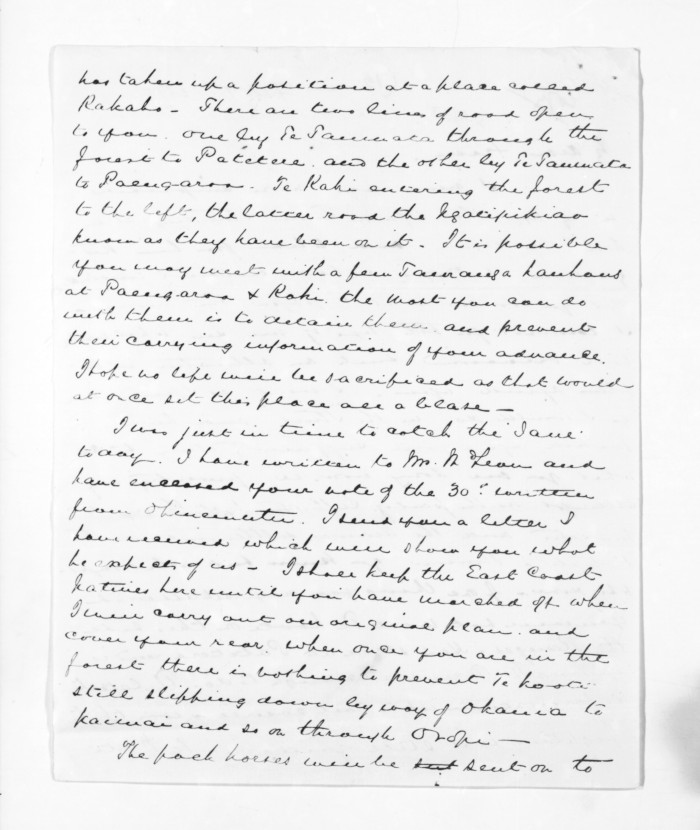 has taken up a position at a place called
Rakaho - There are two lines of road open
to you. one by Te Taumata through the
forest to Patetere. and the other by Te Taumata
to Paengaroa. Te Raki entering the forest
to the left, the latter road the Ngatipikiao
know as they have been on it. It is possible
you may meet with a few Tauranga hauhaus
at Paengaroa & Raki. the most you can do
with them is to detain them. and prevent
their carrying information of your advance.
I hope no life will be sacrificed as that would
at once set this place all a blaze -
I was just in time to catch the
today. I have written to Mr. McLean and
have enclosed your note of the 30th. written
from Ohinemutu. I send you a letter I
have received which will show you what
he expects of us - I shall keep the East Coast
Natives here until you have marched off when
I will carry out our original plan. and
cover your rear. when once you are in the
forest there is nothing to prevent Te Kooti
still slipping down by way of Okauia to
Kaimai and so on through Oropi -
The pack horses will be sent on to